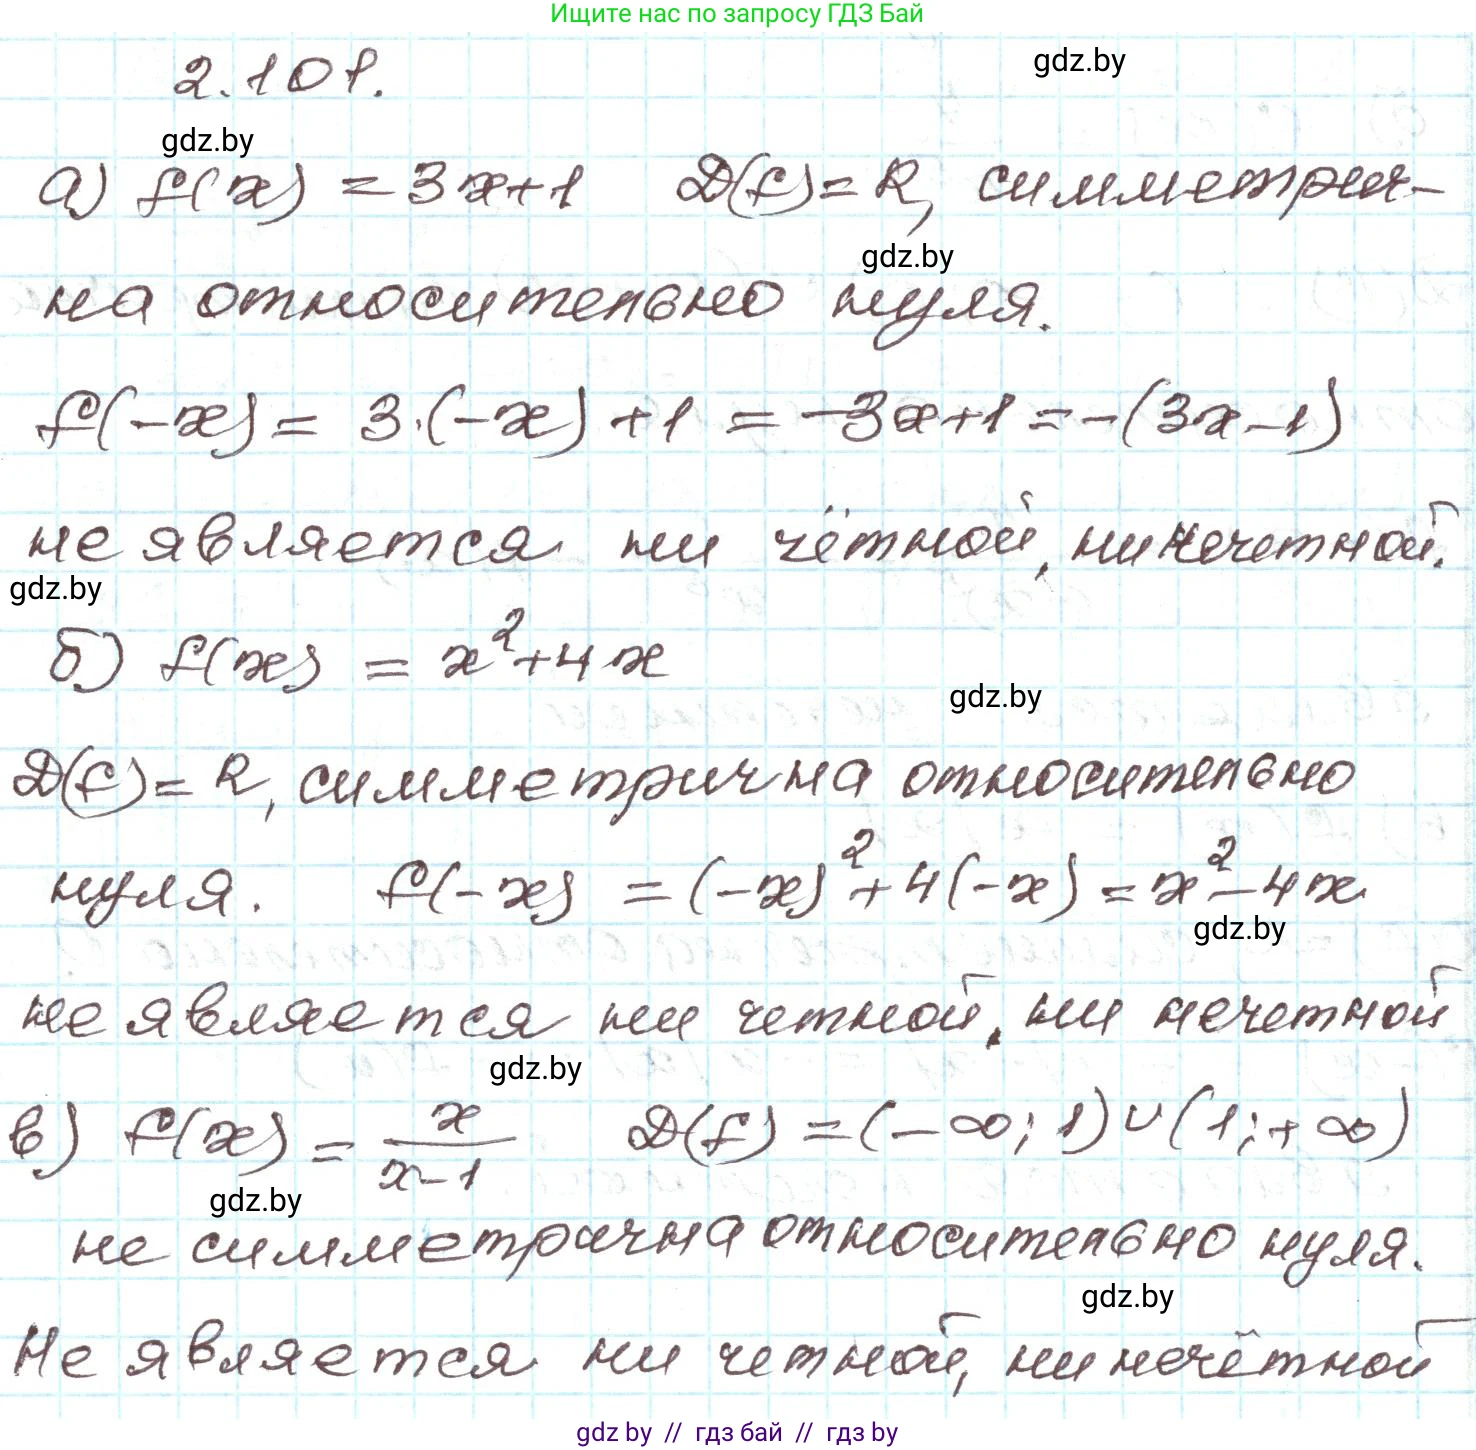 Ищите нас по запросу ГДЗ Бай
2.101.
gdz.by
gdz.by
а) f(x) = 3x+1 D(f)=R, симметрич-
gdz.by
на относительно нуля.
f(-x) = 3·(-x)+1 = -3x+1 = -(3x-1)
не является ни чётной, ни нечетной.
gdz.by
б) f(x) = x²+4x
gdz.by
D(f)=R, симметрична относительно
нуля. f(-x) = (-x)²+4(-x) = x²-4x
gdz.by
не является ни четной, ни нечетной
gdz.by
в) f(x) = x/(x-1) D(f) = (-∞; 1)∪(1; +∞)
gdz.by
не симметрична относительно нуля.
gdz.by
Не является ни четной, ни нечётной
gdz.by // гдз бай // гдз by